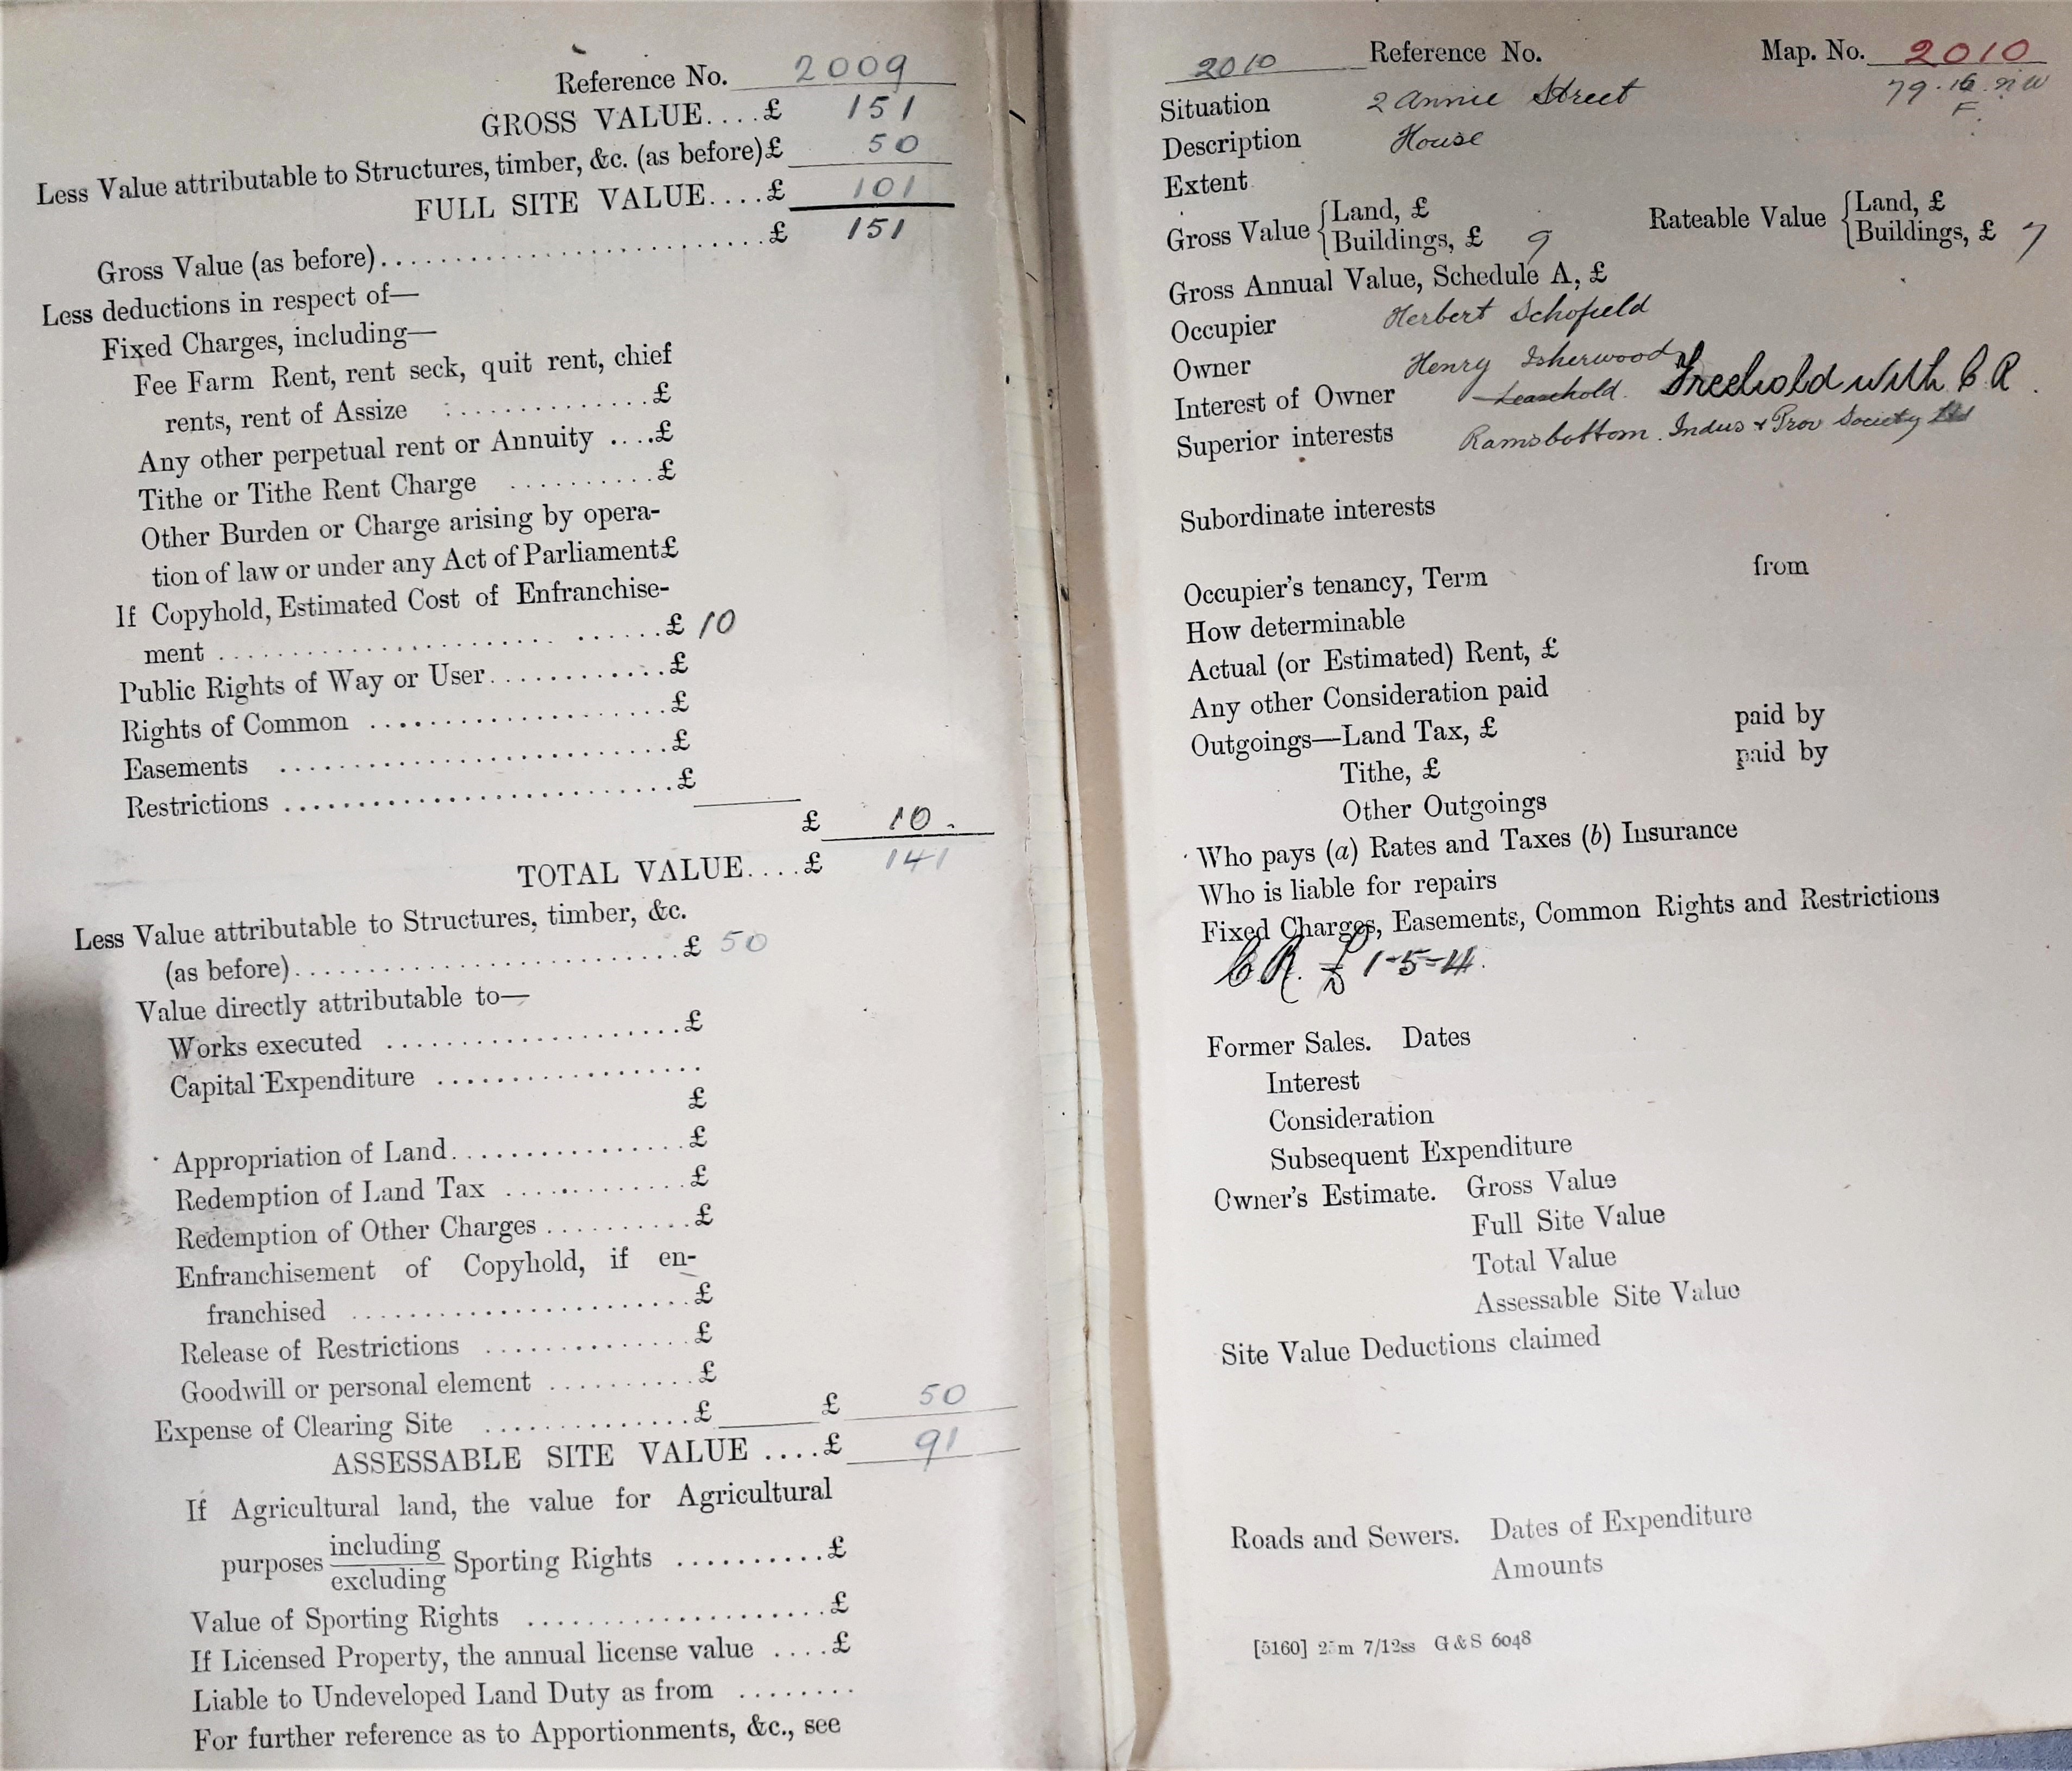 Reference No. 2009
GROSS VALUE....£ 151
Less Value attributable to Structures, timber, &c. (as before)£ 50
FULL SITE VALUE....£ 101
Gross Value (as before)........................£ 151
Less deductions in respect of—
Fixed Charges, including—
Fee Farm Rent, rent seck, quit rent, chief
rents, rent of Assize .............£
Any other perpetual rent or Annuity ....£
Tithe or Tithe Rent Charge ..........£
Other Burden or Charge arising by opera-
tion of law or under any Act of Parliament£
If Copyhold, Estimated Cost of Enfranchise-
ment ............................£ 10
Public Rights of Way or User............£
Rights of Common ....................£
Easements ..........................£
Restrictions ..........................£
£ 10.
TOTAL VALUE....£ 141
Less Value attributable to Structures, timber, &c.
(as before)............................£ 50
Value directly attributable to—
Works executed ....................£
Capital Expenditure ..................
£
Appropriation of Land................£
Redemption of Land Tax ............£
Redemption of Other Charges..........£
Enfranchisement of Copyhold, if en-
franchised ........................£
Release of Restrictions ..............£
Goodwill or personal element ..........£
Expense of Clearing Site ..............£ £ 50
ASSESSABLE SITE VALUE ....£ 91
If Agricultural land, the value for Agricultural
purposes including
excluding Sporting Rights ..........£
Value of Sporting Rights ....................£
If Licensed Property, the annual license value ....£
Liable to Undeveloped Land Duty as from ........
For further reference as to Apportionments, &c., see
2010 Reference No. Map. No. 2010
79.16.NW
F.
Situation 2 Annie Street
Description House
Extent
Gross Value {Land, £ Rateable Value {Land, £
Buildings, £ 9 Buildings, £ 7
Gross Annual Value, Schedule A, £
Occupier Herbert Schofield
Owner Henry Isherwood
Interest of Owner Leasehold. Freehold with C R.
Superior interests Ramsbottom. Indus & Prov Society Ltd
Subordinate interests
Occupier's tenancy, Term from
How determinable
Actual (or Estimated) Rent, £
Any other Consideration paid
Outgoings—Land Tax, £ paid by
Tithe, £ paid by
Other Outgoings
Who pays (a) Rates and Taxes (b) Insurance
Who is liable for repairs
Fixed Charges, Easements, Common Rights and Restrictions
C R. £1-5-4.
Former Sales. Dates
Interest
Consideration
Subsequent Expenditure
Owner's Estimate. Gross Value
Full Site Value
Total Value
Assessable Site Value
Site Value Deductions claimed
Roads and Sewers. Dates of Expenditure
Amounts
[5160] 25m 7/12ss G & S 6048